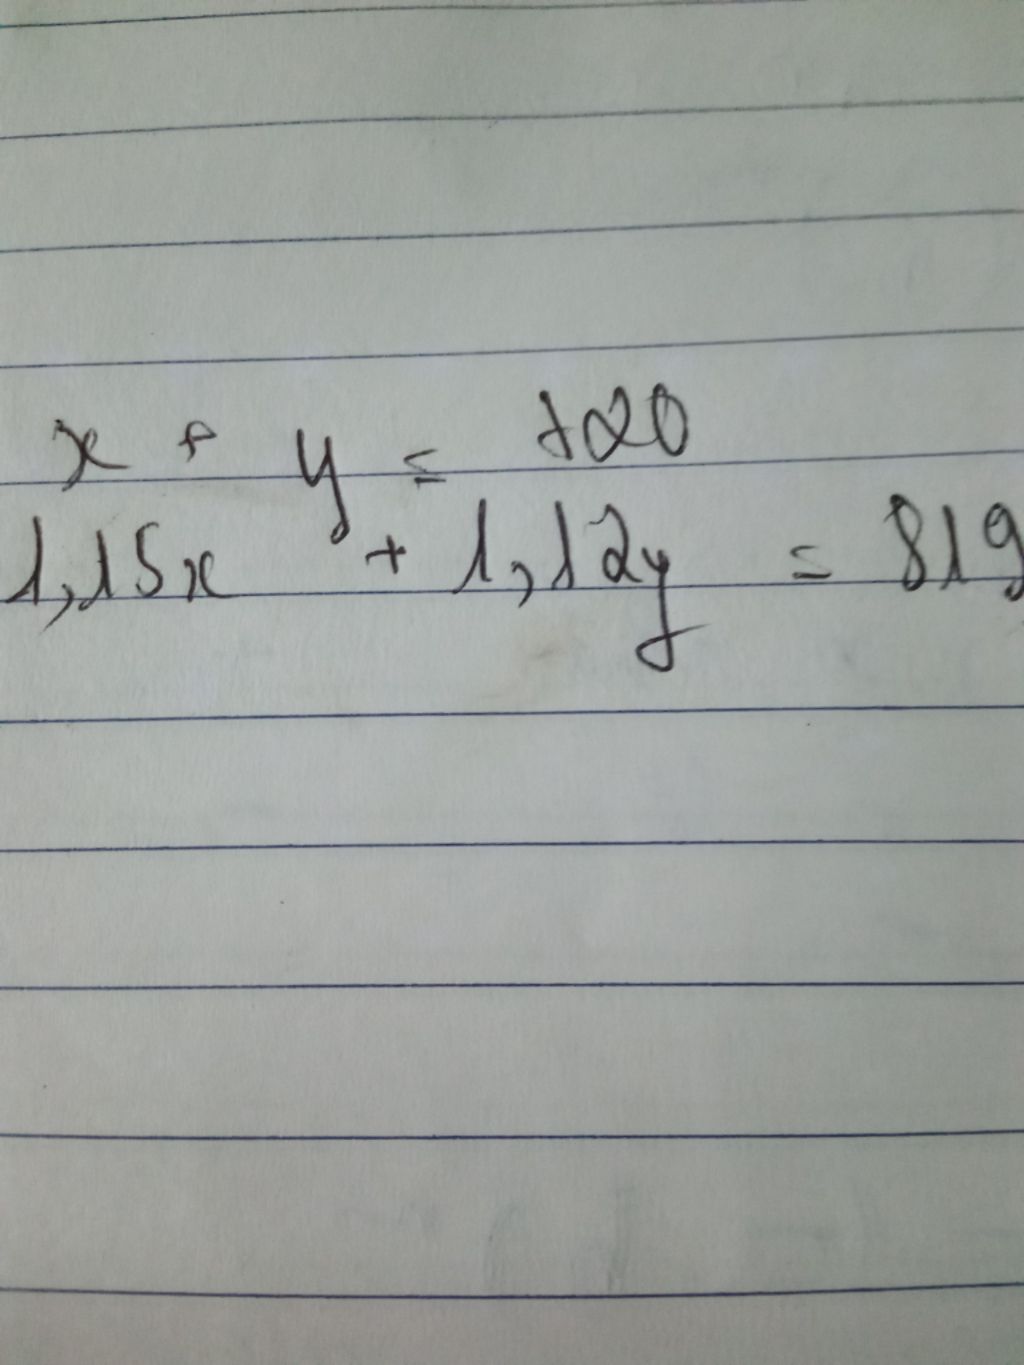 x + y = 720
1,15x + 1,12y = 819